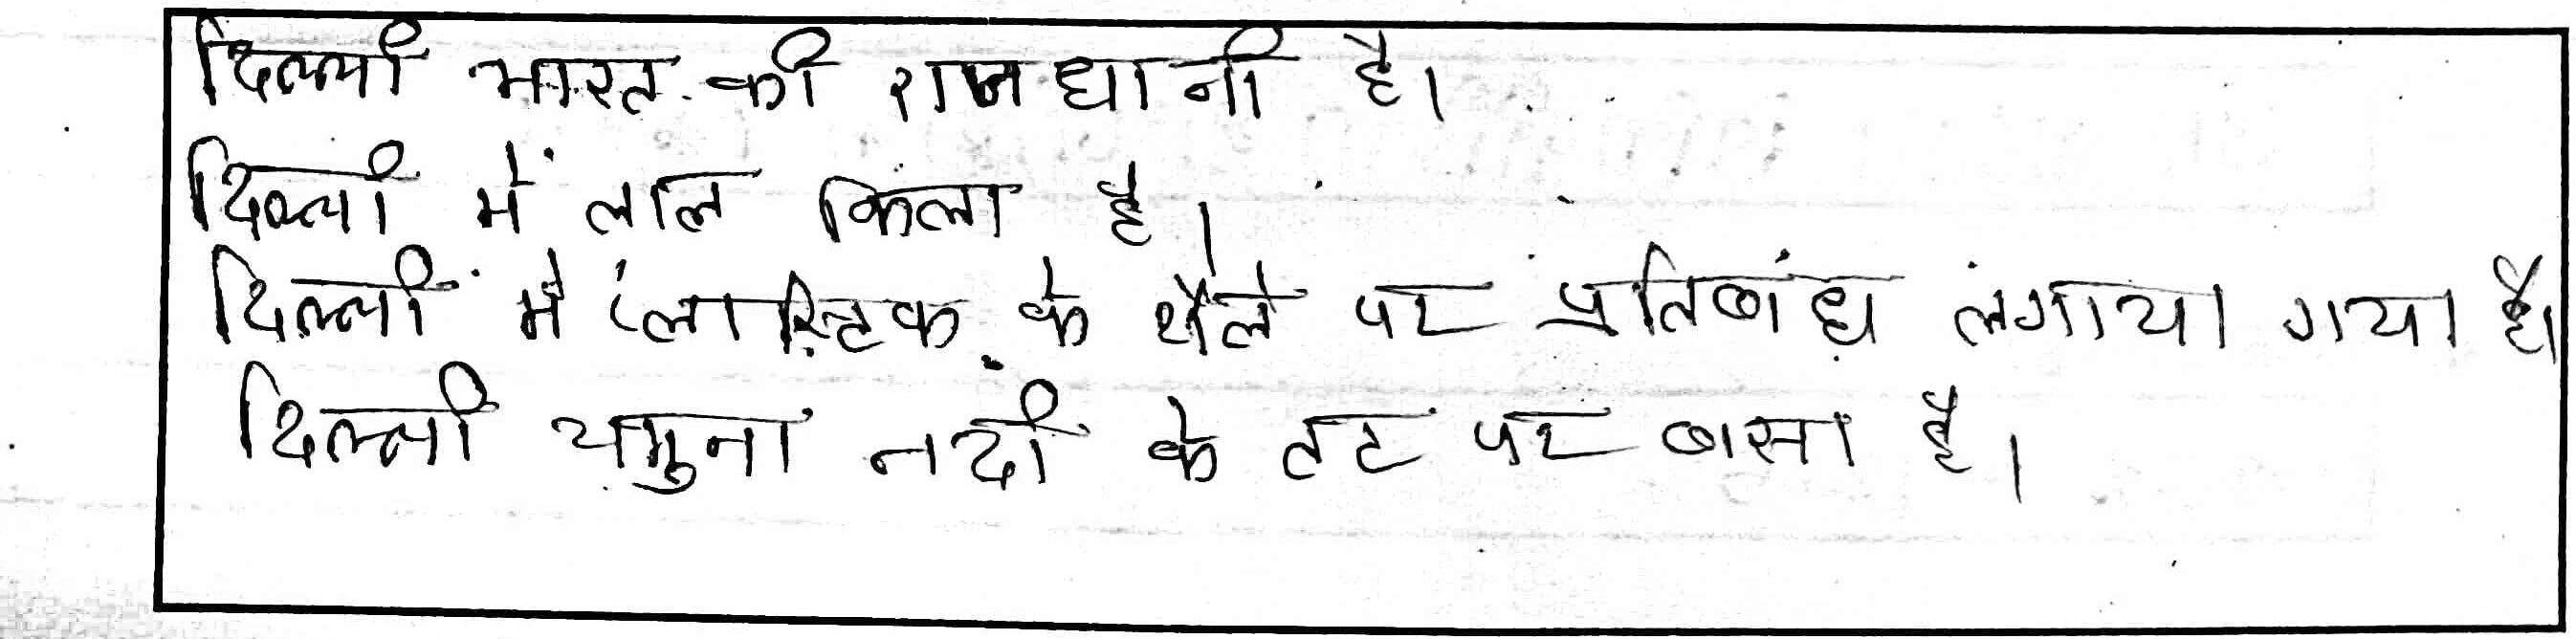 दिल्ली भारत की राजधानी है।
दिल्ली में लाल किला है।
दिल्ली में प्लास्टिक के थैले पर प्रतिबंध लगाया गया है।
दिल्ली यमुना नदी के तट पर बासा है।